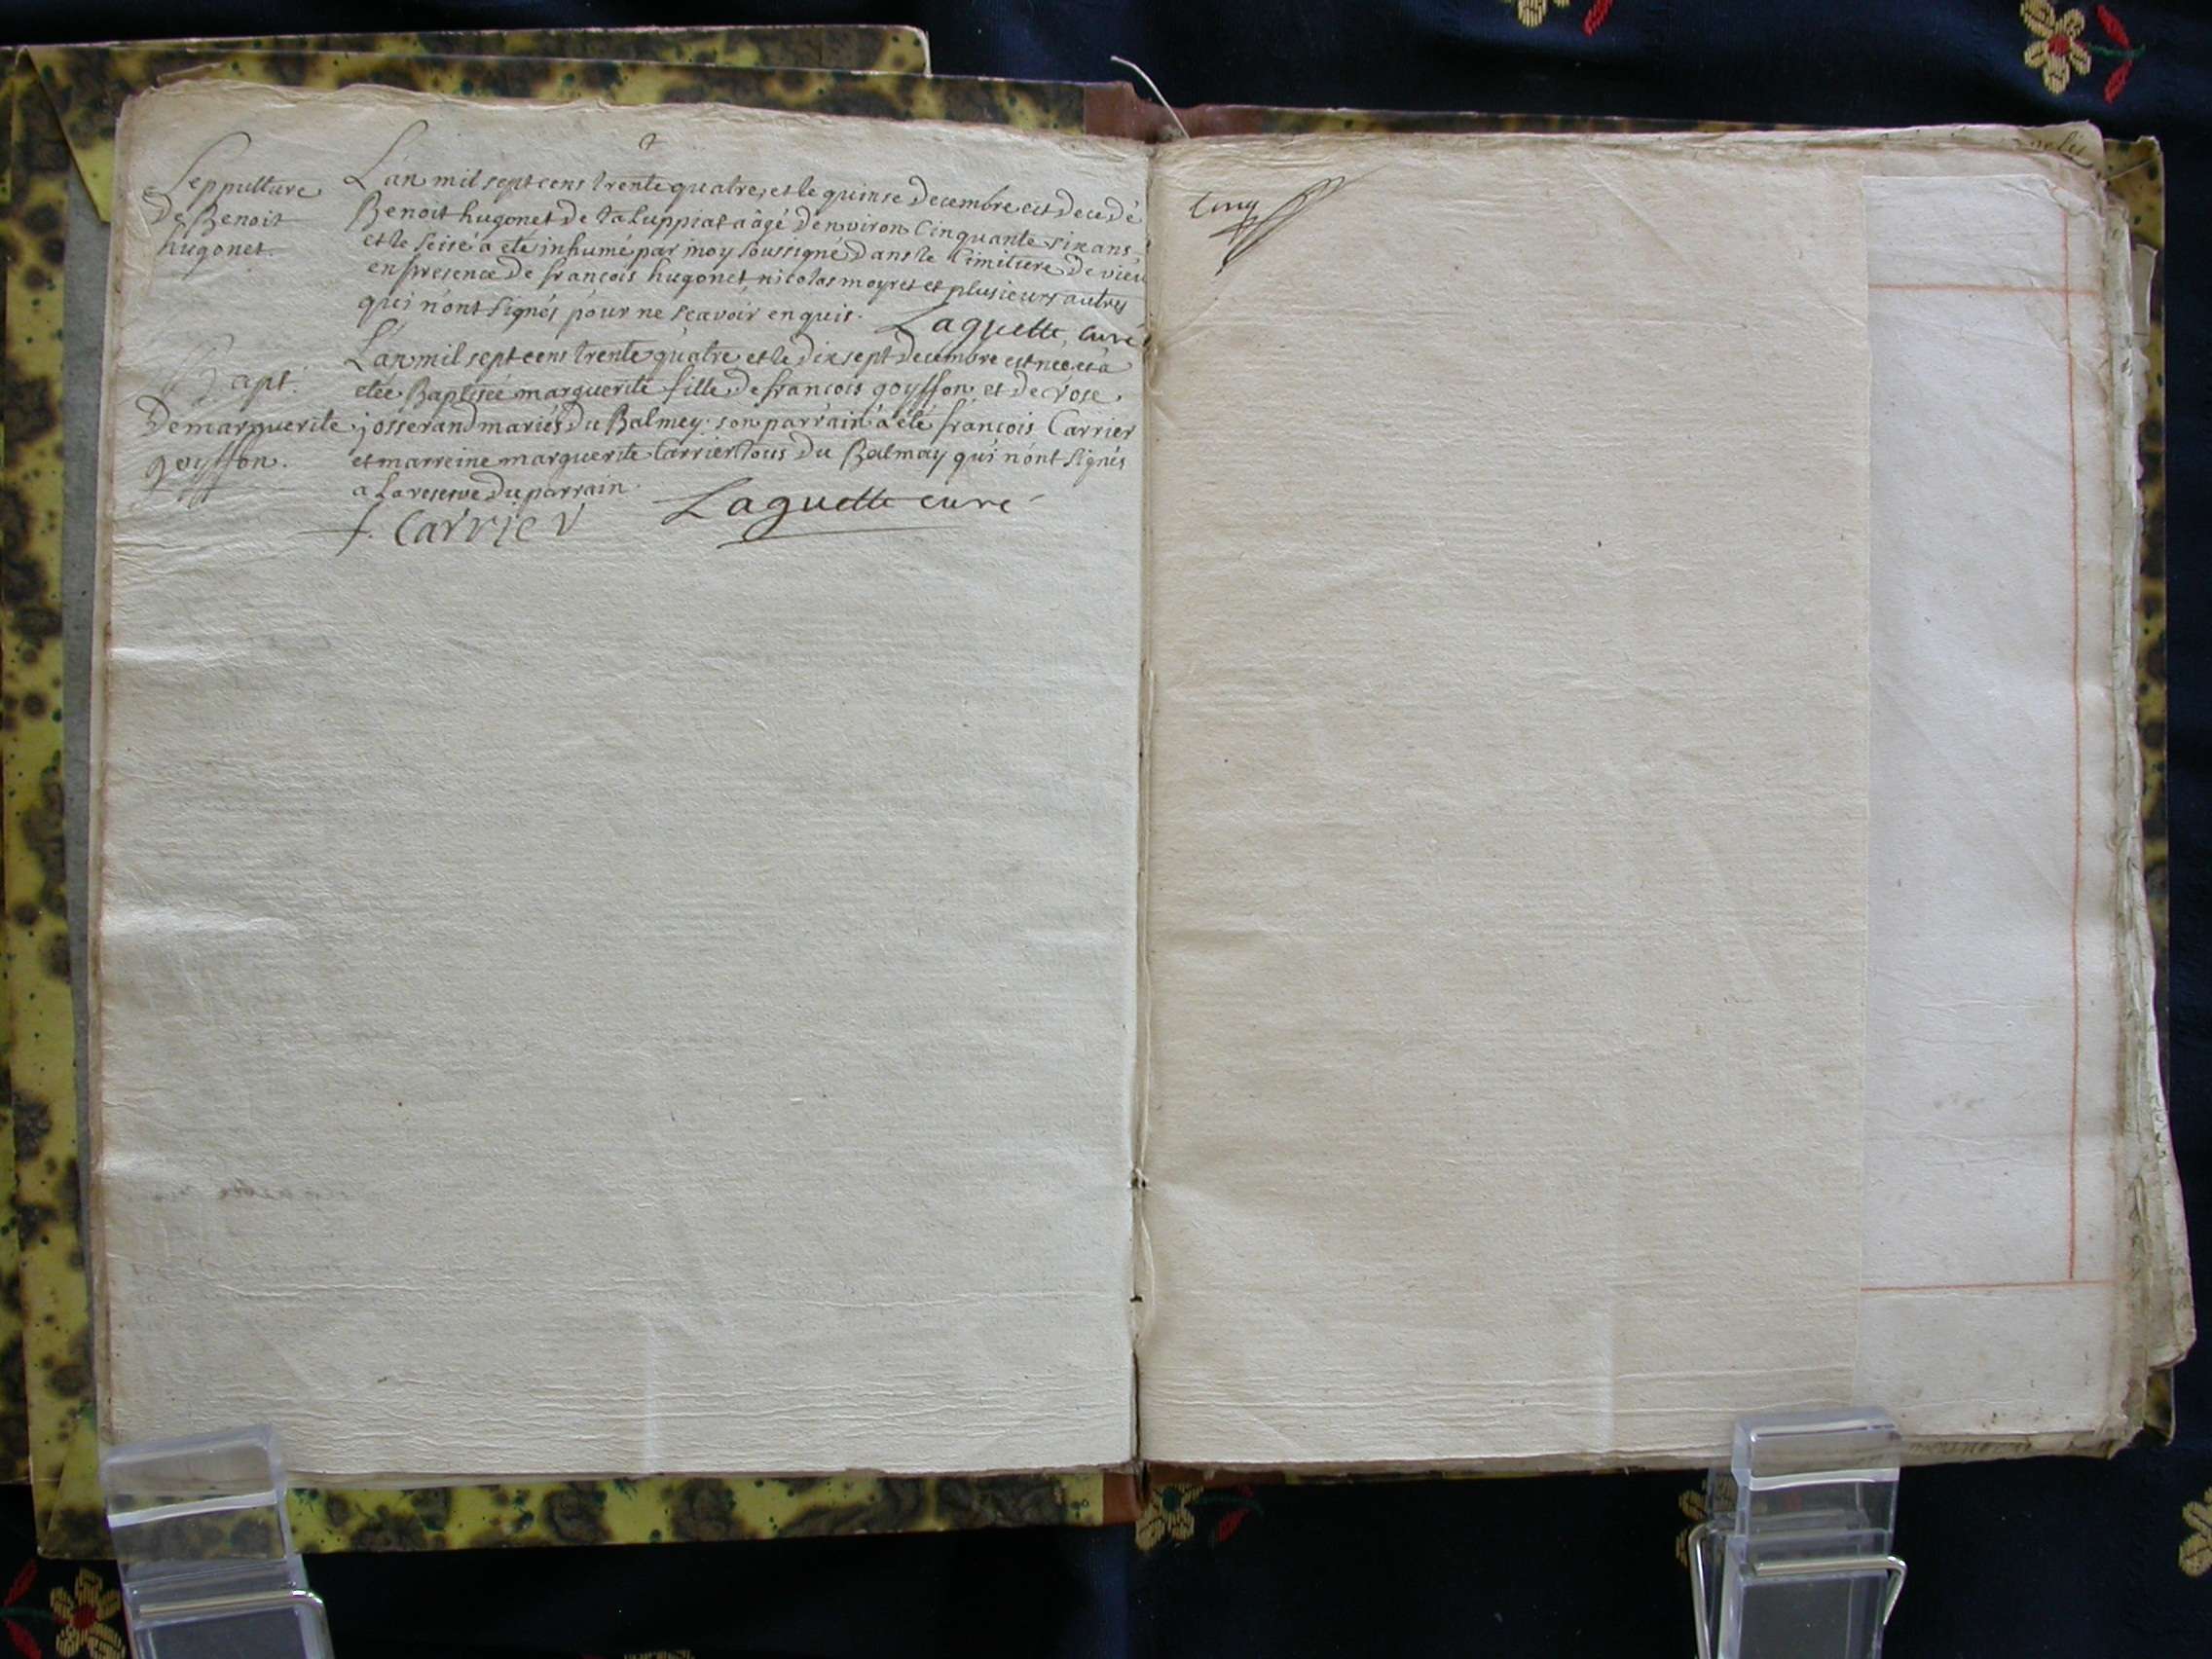 Seppulture
de Benoit
hugonet.
L'an mil sept cens trente quatre, et le quinse decembre est decedé
Benoit hugonet de la Luppiat aâgé d'environ Cinquante six ans
et le seise a eté inhumé par moy soussigné dans le Cimitiere de vieu
en presence de françois hugonet, nicolas moyret et plusieurs autres
qui n'ont signés pour ne scavoir enquis.
Laguette, curé
Bapt.
de marguerite
goyffon.
L'an mil sept cens trente quatre et le dix sept decembre est née et a
etée Baptisée marguerite fille de françois goyffon et de rose
josserand mariés du Balmey son parrain a été françois Carrier
et marreine marguerite Carrier tous du Balmay qui n'ont signés
a la reserve du parrain.
f. Carrier
Laguette curé
cinq